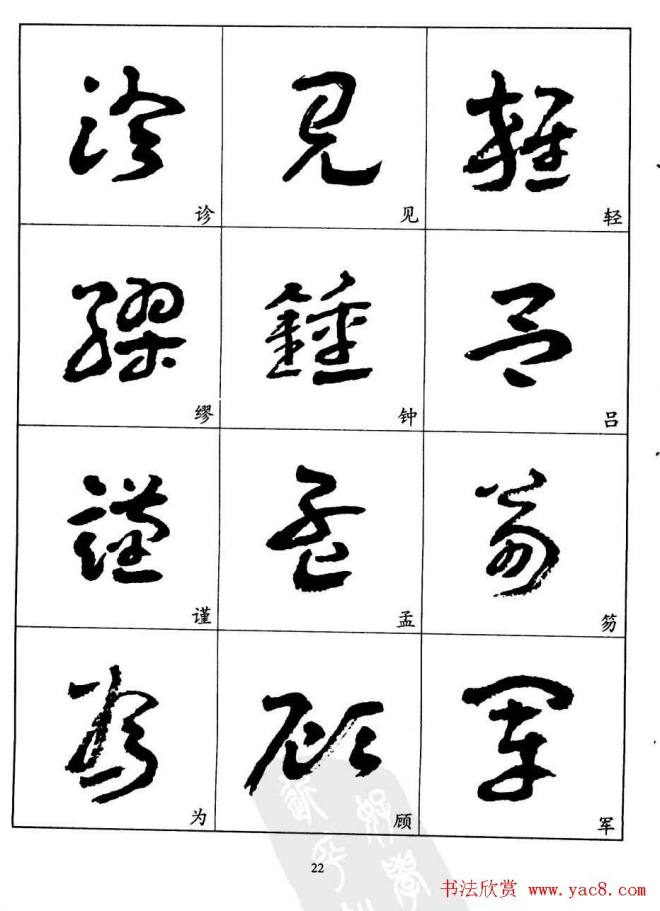 诊 见 轻
缪 钟 吕
谨 孟 笏
为 顾 军
22
书法欣赏 www.yac8.com